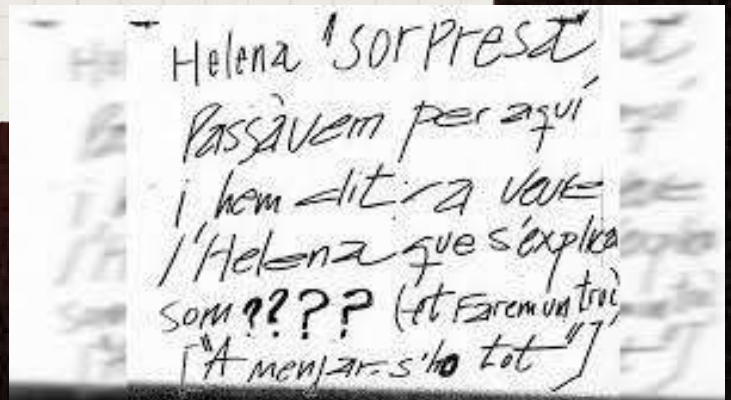 Helena "sorpresa"
Passàvem per aquí
i hem dit: a veure
l'Helena que s'explica
som ???? (et farem un truc
["A menjar-s'ho tot"]